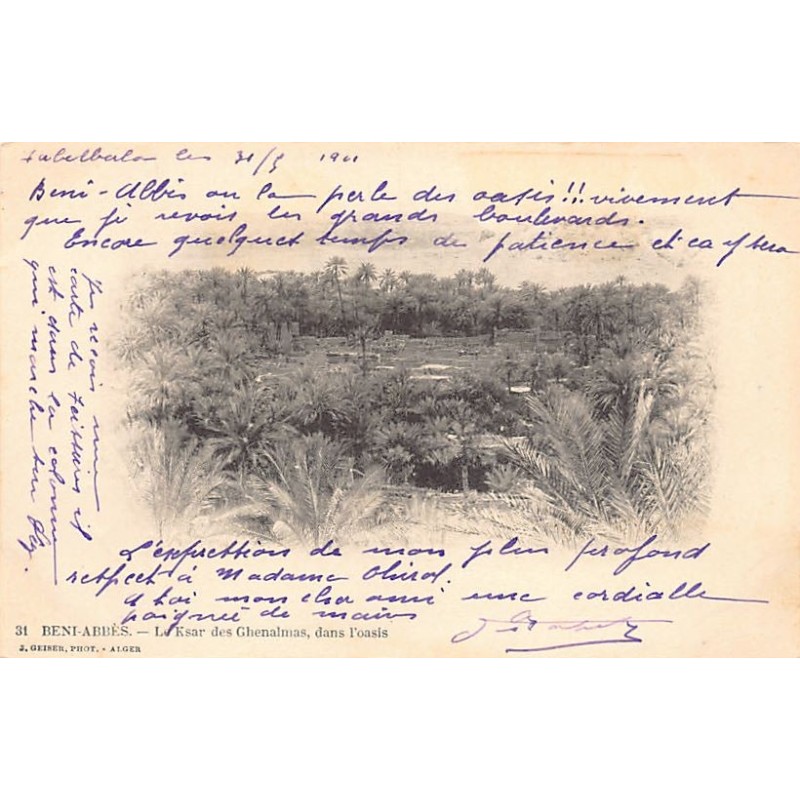 Tabelbala les 31/5 1901
Beni-Abbès ou la perle des oasis!!! vivement
que je revois les grands boulevards.
Encore quelques temps de patience et ca y sera
Je reçois une
carte de Teissères il
est dans la colonne
qui marche sur
L'expression de mon plus profond
respect à Madame
A toi mon cher ami une cordialle
poignée de mains
31 BENI-ABBÈS. - Le Ksar des Ghenalmas, dans l'oasis
J. GEISER, PHOT. - ALGER